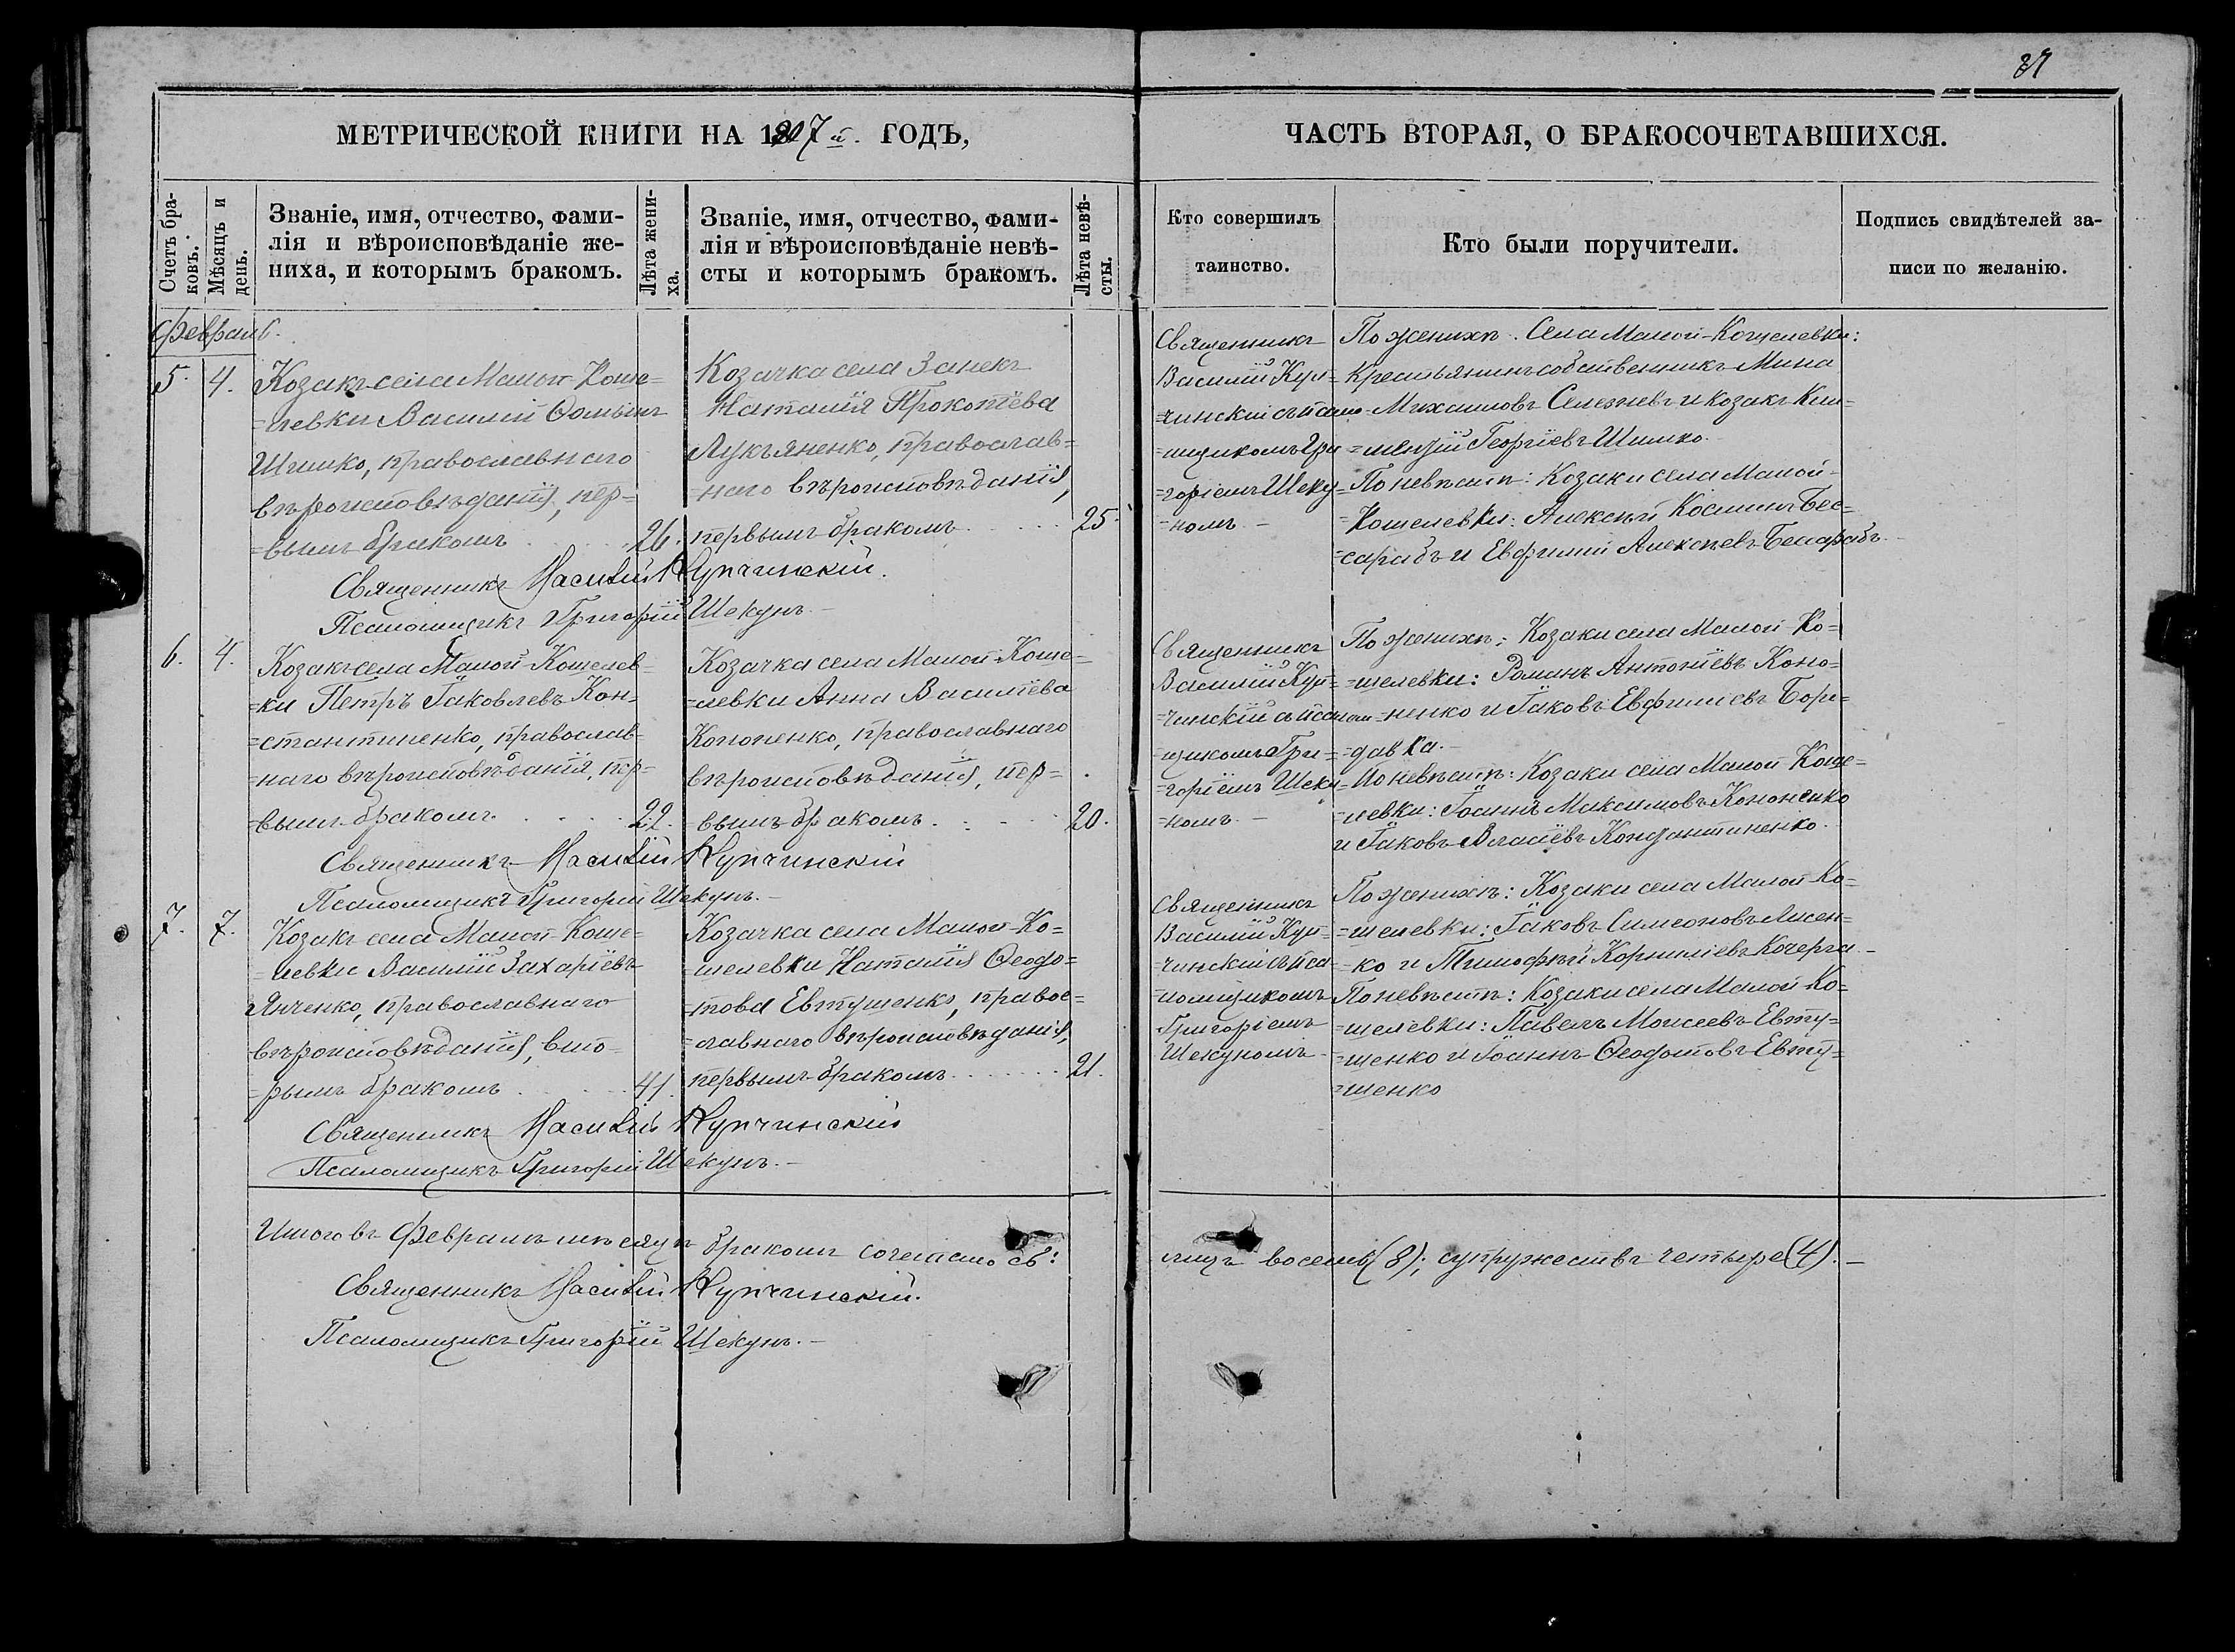 87
МЕТРИЧЕСКОЙ КНИГИ НА 1907й. ГОДЪ,
ЧАСТЬ ВТОРАЯ, О БРАКОСОЧЕТАВШИХСЯ.
Счетъ бра-
ковъ.
Мѣсяцъ и
день.
Званіе, имя, отчество, фами-
лія и вѣроисповѣданіе же-
ниха, и которымъ бракомъ.
Лѣта жени-
ха.
Званіе, имя, отчество, фами-
лія и вѣроисповѣданіе невѣ-
сты и которымъ бракомъ.
Лѣта невѣ-
сты.
Кто совершилъ
таинство.
Кто были поручители.
Подпись свидѣтелей за-
писи по желанію.
Февраль.
5. 4.
Козакъ села Малой Коше=
=левки Василій Ѳоминъ
Шишко, православнаго
вѣроисповѣданія, пер=
=вымъ бракомъ . . . 26.
Козачка села Занекъ
Наталія Прокопіева
Лукъяненко, православ=
=наго вѣроисповѣданія,
первымъ бракомъ . . . 25.
Священникъ
Василій Куп=
=чинскій съ псало=
=мщикомъ Гри
=горіемъ Шеку=
=номъ. -
По женихѣ. Села Малой-Кошелевки:
Крестьянинъ собственникъ Мина
Михаиловъ Селезневъ и козакъ Кли=
=ментій Георгіевъ Шишко.
По невѣстѣ: Козаки села Малой-
=Кошелевки: Алексѣй Косминъ Бес=
=сарабъ и Евфимій Алексѣевъ Бесарабъ.
Священникъ Василій Купчинскій.
Псаломщикъ Григорій Шекунъ. -
6. 4.
Козакъ села Малой Кошелев=
=ки Петръ Іаковлевъ Кон=
=стантиненко, православ=
=наго вѣроисповѣданія, пер=
=вымъ бракомъ . . . 22.
Козачка села Малой-Коше=
=левки Анна Василіева
Кононенко, православнаго
вѣроисповѣданія, пер=
=вымъ бракомъ . . . 20.
Священникъ
Василій Куп=
=чинскій съ псалом=
=щикомъ Гри=
=горіемъ Шеку=
=номъ. -
По женихѣ: Козаки села Малой Ко=
=шелевки: Романъ Антоніевъ Коно=
=ненко и Іаковъ Евфиміевъ Боро=
=давка. -
По невѣстѣ: Козаки села Малой Коше=
=левки: Іоаннъ Максимовъ Кононенко
и Іаковъ Власіевъ Константиненко.
Священникъ Василій Купчинскій
Псаломщикъ Григорій Шекунъ. -
7. 7.
Козакъ села Малой-Коше=
=левки Василій Захаріевъ
Янченко, православнаго
вѣроисповѣданія, вто=
=рымъ бракомъ . . . 41.
Козачка села Малой-Ко=
=шелевки Наталія Ѳеодо=
=това Евтушенко, правос=
=лавнаго вѣроисповѣданія,
первымъ бракомъ . . . 21.
Священникъ
Василій Куп=
=чинскій съ пса=
=ломщикомъ
Григоріемъ
Шекуномъ.
По женихѣ: Козаки села Малой Ко=
=шелевки: Іаковъ Симеоновъ Лисен=
=ко и Тимофѣй Корниліевъ Кочерга. -
По невѣстѣ: Козаки села Малой-Ко=
=шелевки: Павелъ Моисеевъ Евту=
=шенко и Іоаннъ Ѳеодотовъ Евту=
=шенко
Священникъ Василій Купчинскій
Псаломщикъ Григорій Шекунъ. -
Итого въ Февралѣ мѣсяцѣ бракомъ сочеталось:
лицъ восемь (8); супружествъ четыре (4). -
Священникъ Василій Купчинскій.
Псаломщикъ Григорій Шекунъ. -